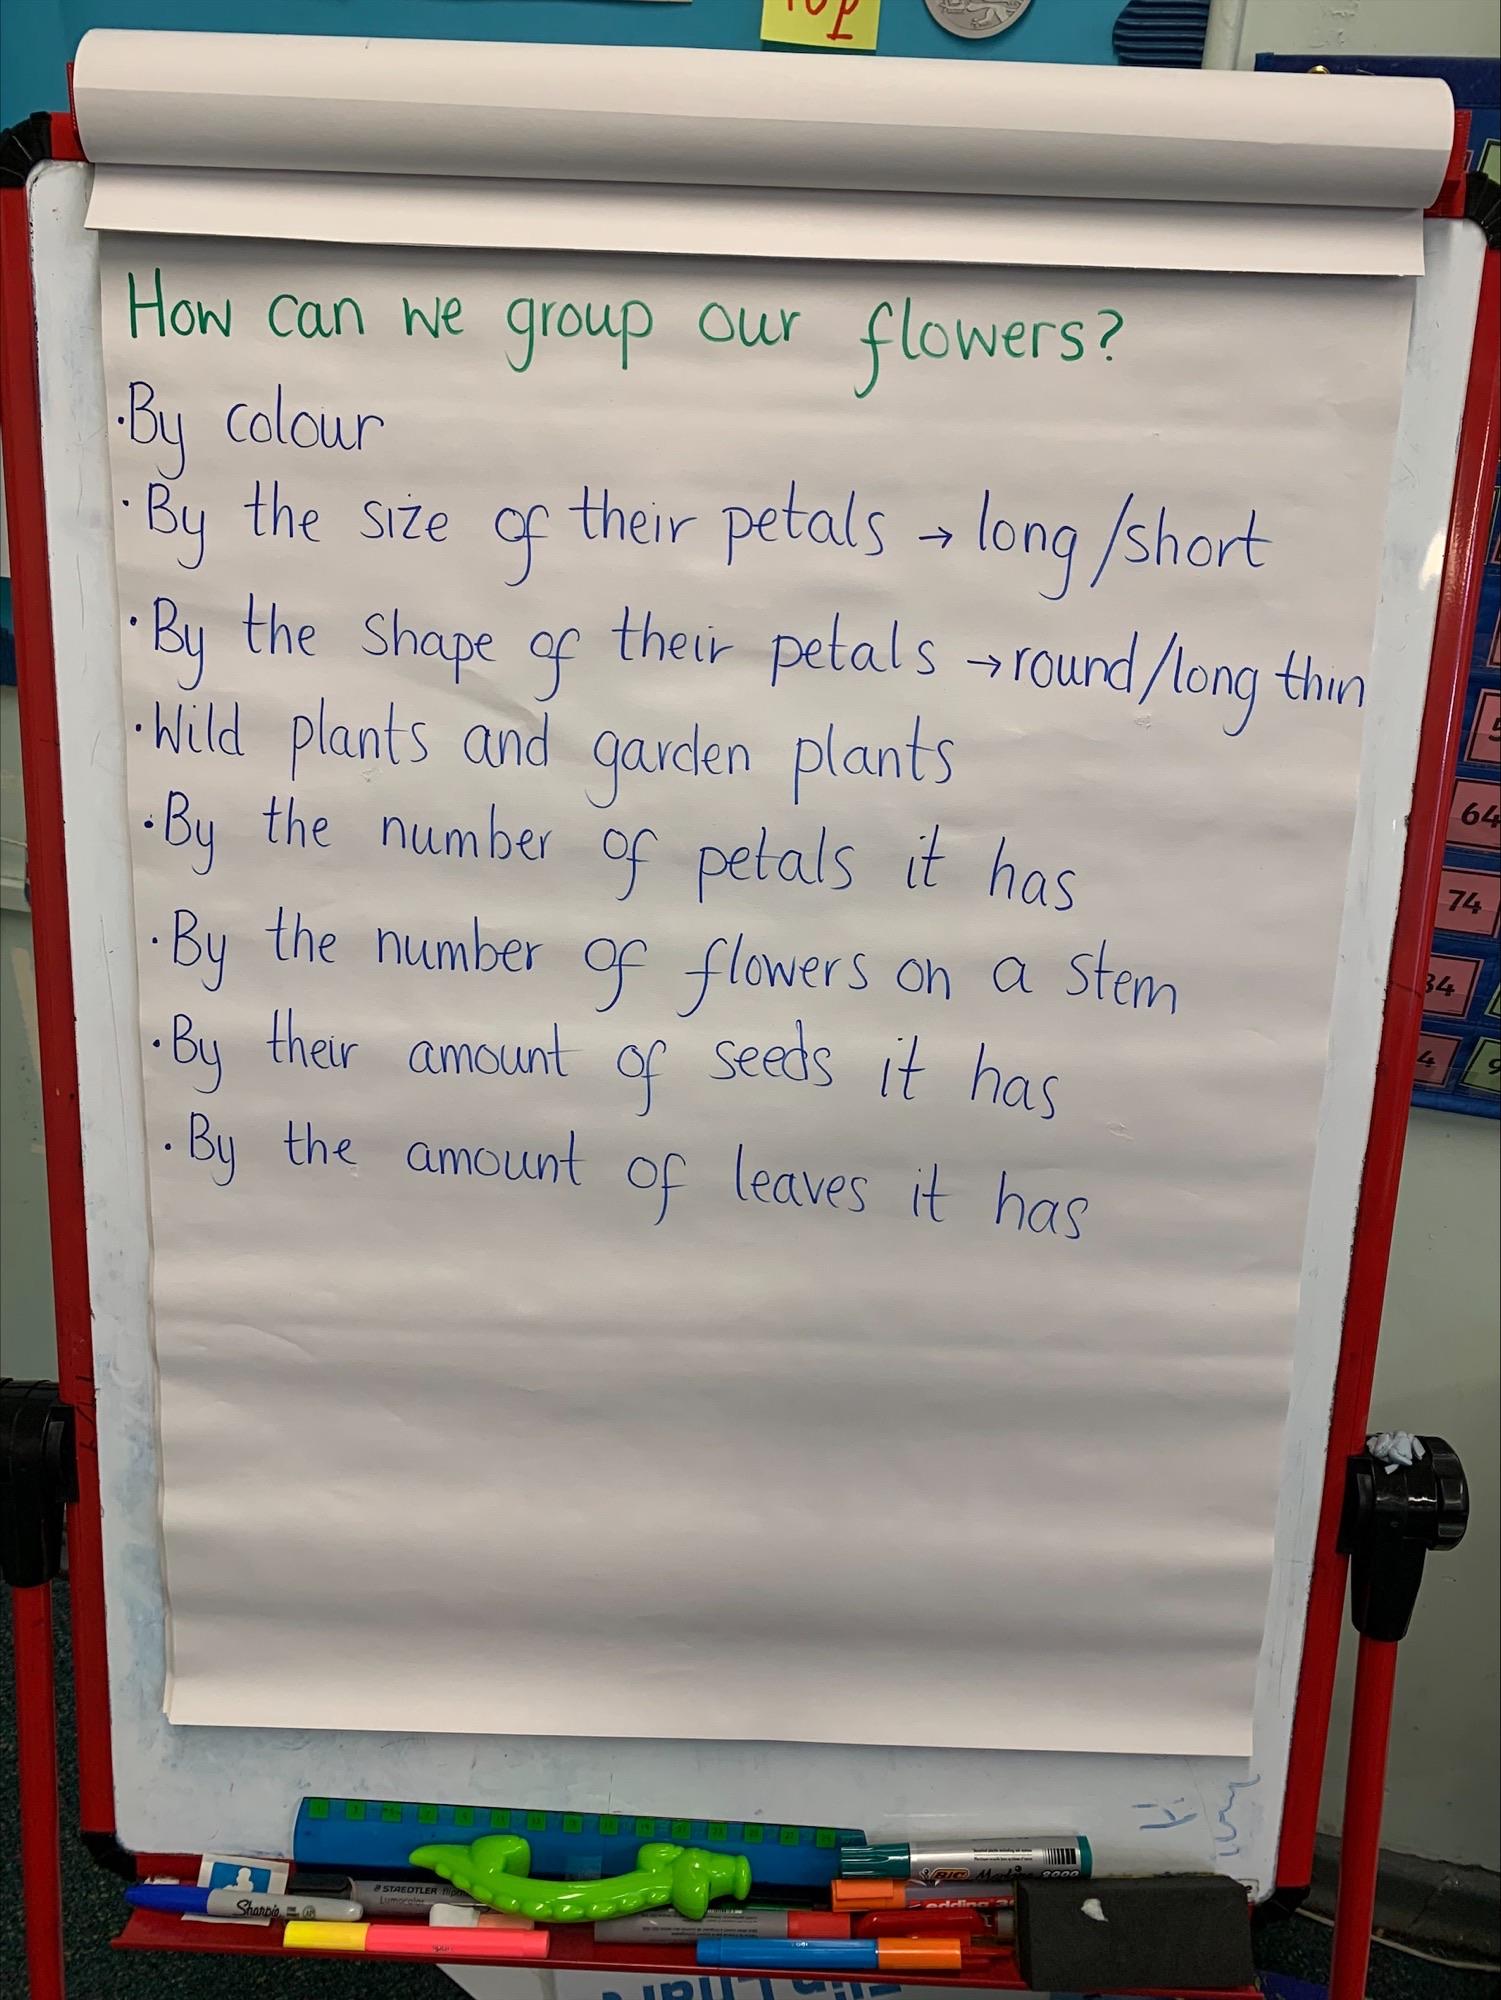 How can we group our flowers?
·By colour
·By the size of their petals → long/short
·By the shape of their petals → round/long thin
·Wild plants and garden plants
·By the number of petals it has
·By the number of flowers on a stem
·By their amount of seeds it has
·By the amount of leaves it has
64
74
34
4
9
BIC
STAEDTLER
Lumocolor
Sharpie
edding